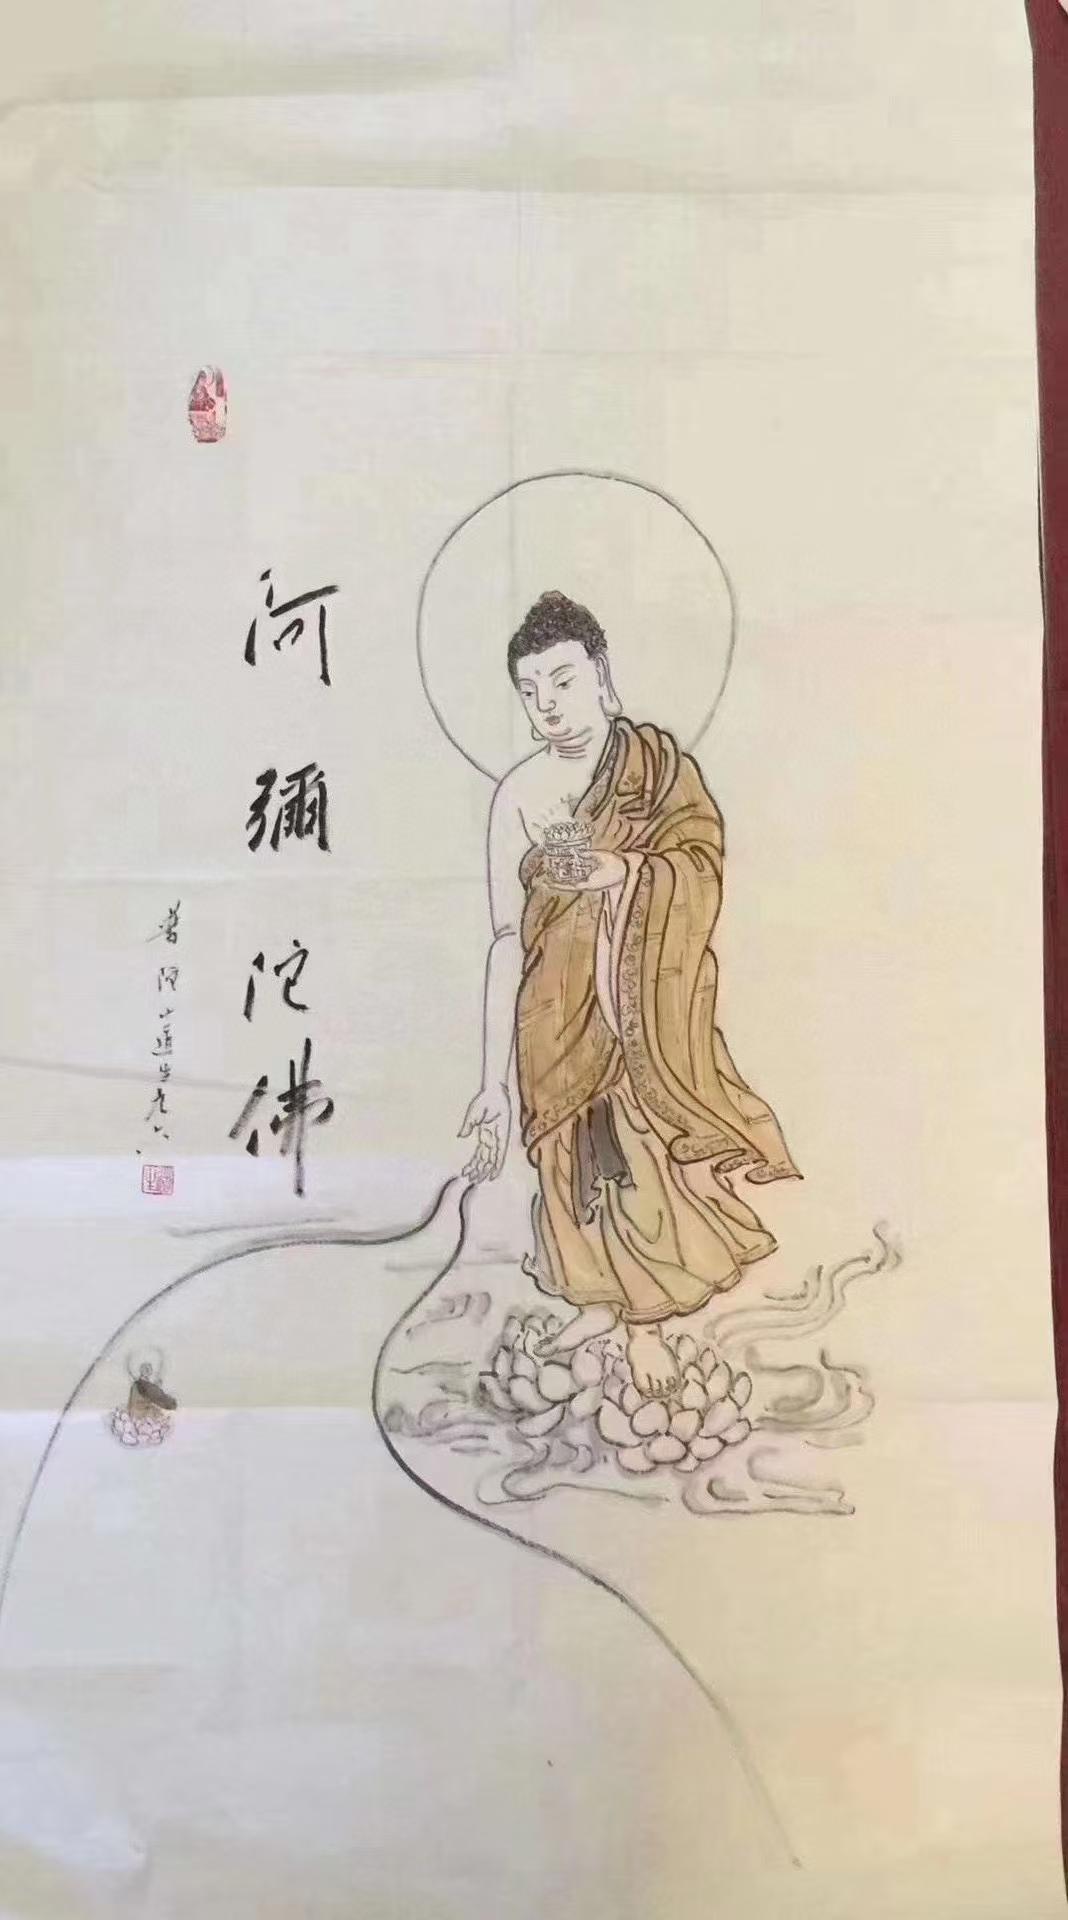 阿彌陀佛
普陀山道生老人